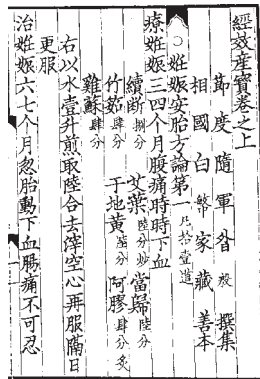 經效產寶卷之上
節度隨軍昝殷撰集
相國白繁家藏善本
○妊娠安胎方論第一凡拾壹道
療妊娠三四個月腹痛時時下血
續斷捌分 艾葉陸分炒 當歸陸分
竹茹肆分 干地黃陸分 阿膠肆分炙
雞蘇肆分
右以水壹升煎取陸合去滓空心再服隔日
更服
治妊娠六七個月忽胎動下血腸痛不可忍